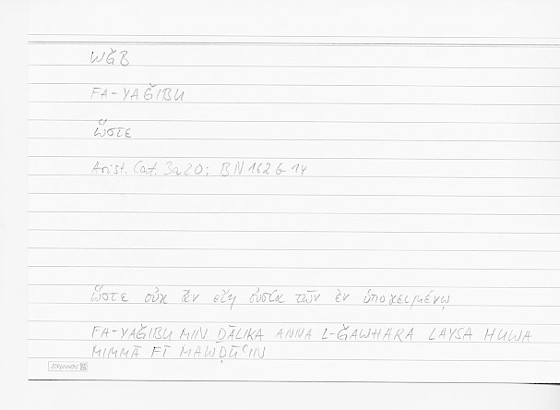 WǦB
FA-YAǦIBU
ὥστε
Arist. Cat. 3a20; BN 162 b 14
ὥστε οὐκ ἂν εἴη οὐσία τῶν ἐν ὑποκειμένῳ
FA-YAǦIBU MIN ḎĀLIKA ANNA L-ǦAWHARA LAYSA HUWA
MIMMĀ FĪ MAWḌŪʿIN